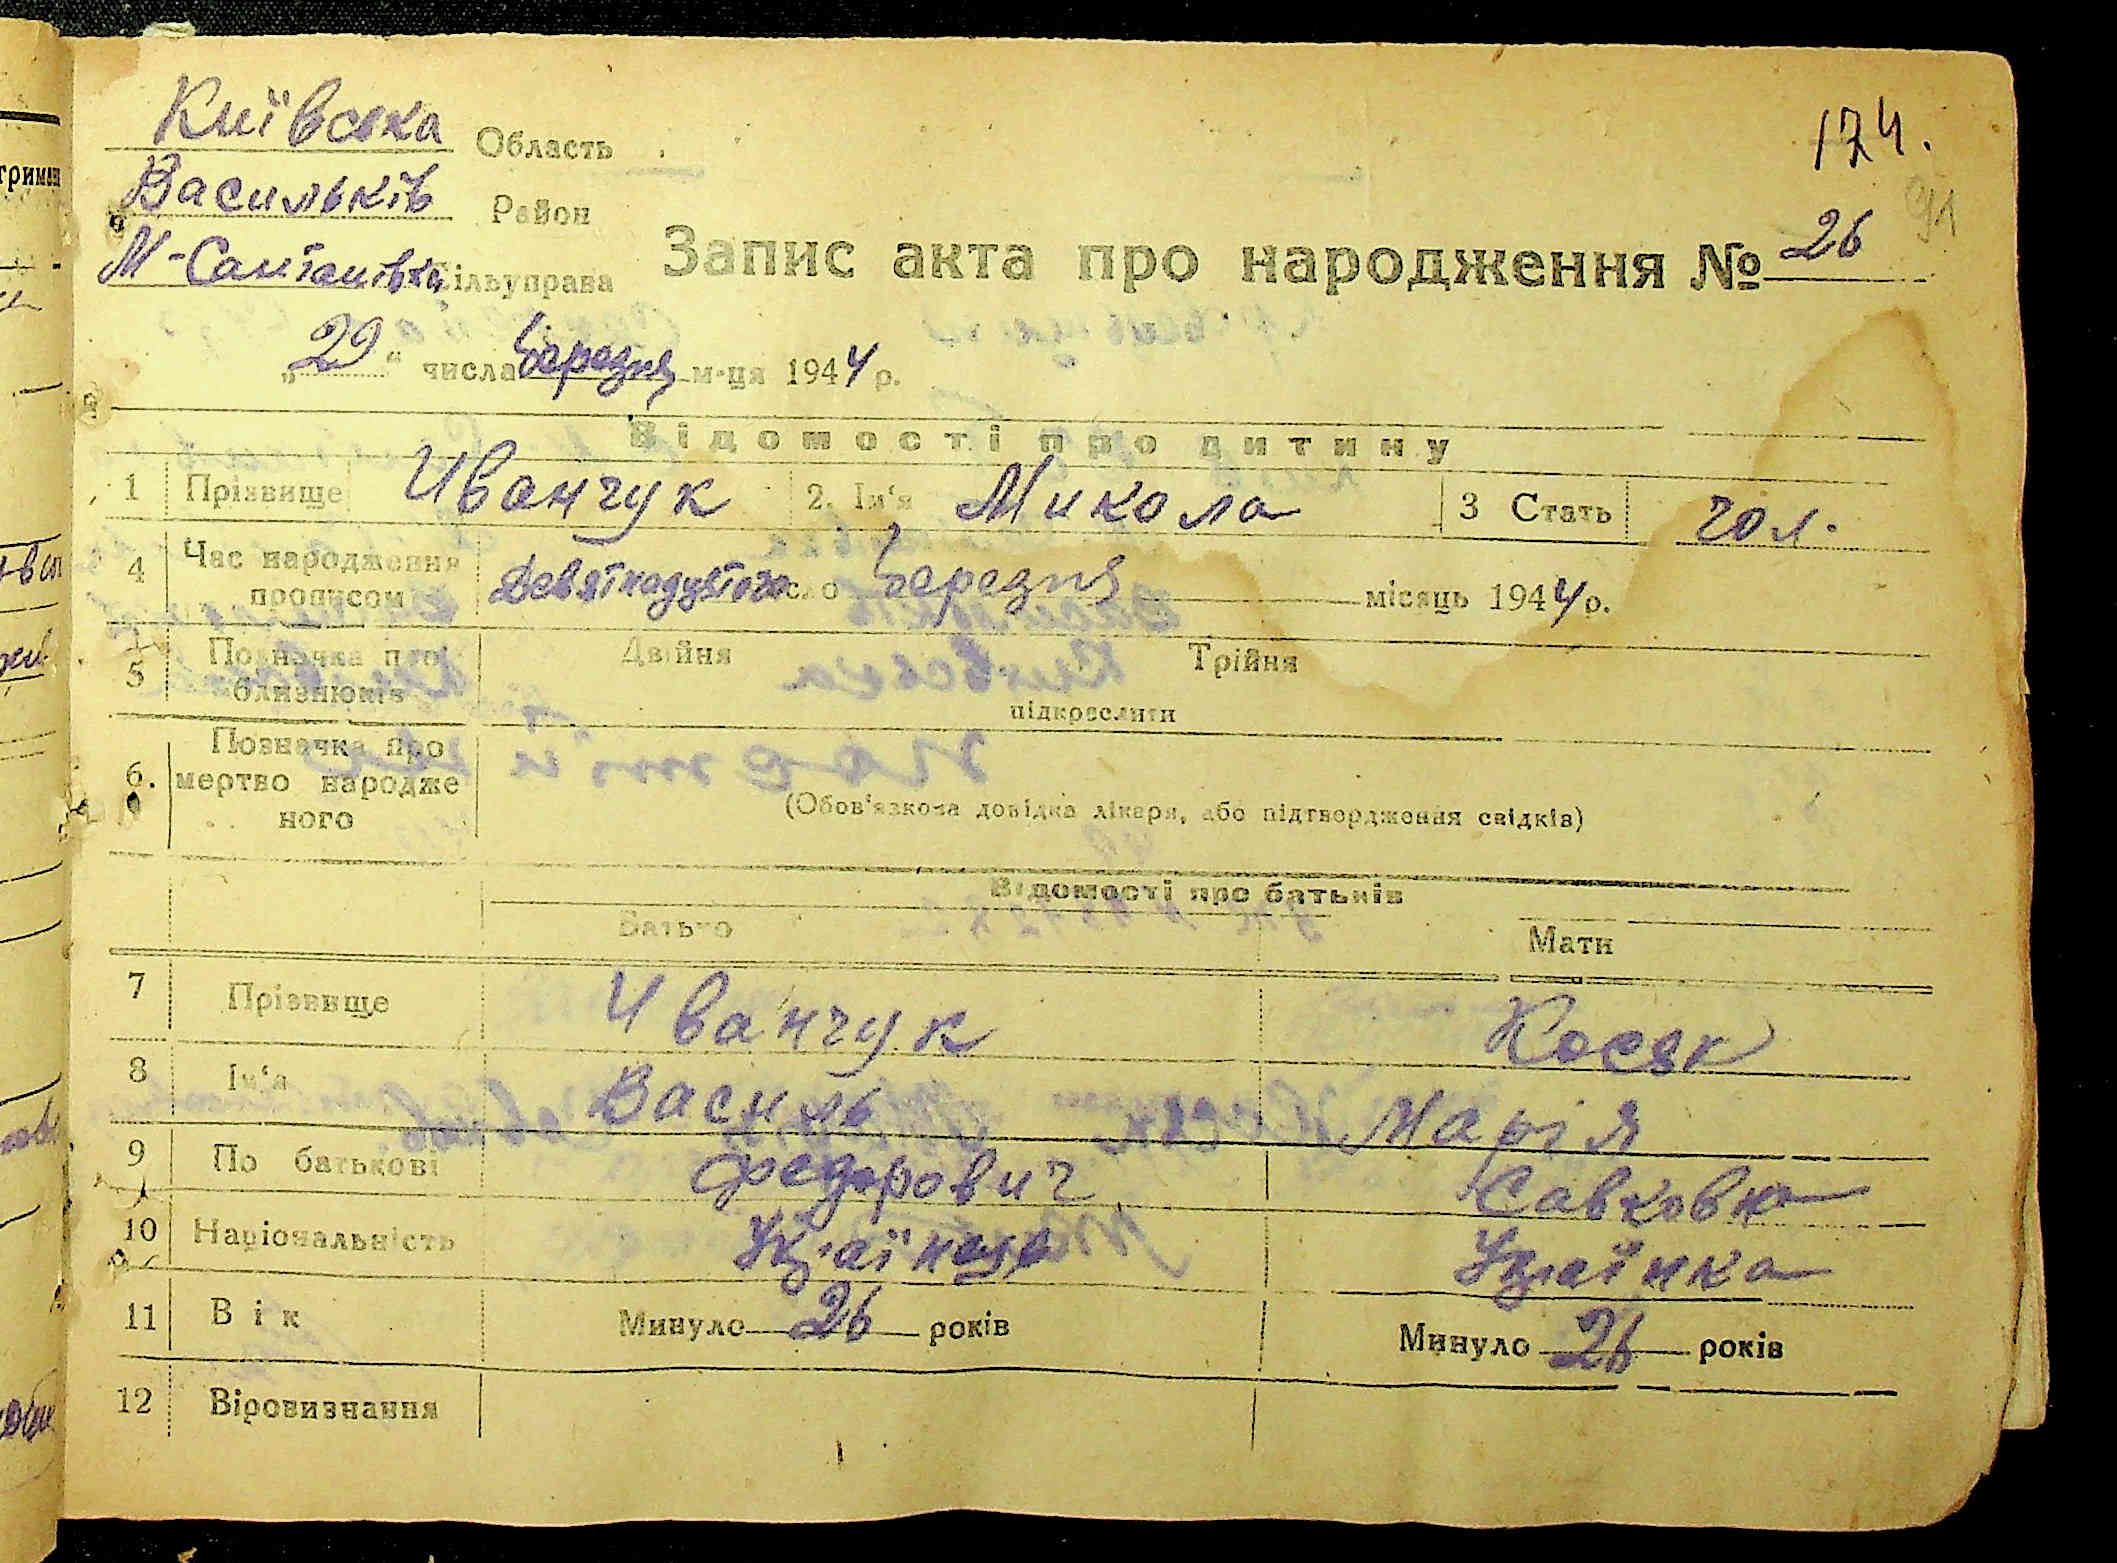 174.
91
Київська Область
Васильків Район
М-Салтанівка Сільуправа
Запис акта про народження № 26
„29“ числа березня м-ця 1944 р.
Відомості про дитину
1 Прізвище Иванчук 2. Ім‘я Микола 3 Стать чол.
4 Час народження прописом Девятнадцятого число березня місяць 1944 р.
5 Позначка про близнюків Двійня Трійня
підкреслити
6. Позначка про мертво народженого
(Обов‘язкова довідка лікаря, або підтвердження свідків)
Відомості про батьків
Батько Мати
7 Прізвище Иванчук Косяк
8 Ім‘я Василь Марія
9 По батькові Федорович Савковна
10 Національність Українець Українка
11 Вік Минуло 26 років Минуло 26 років
12 Віровизнання